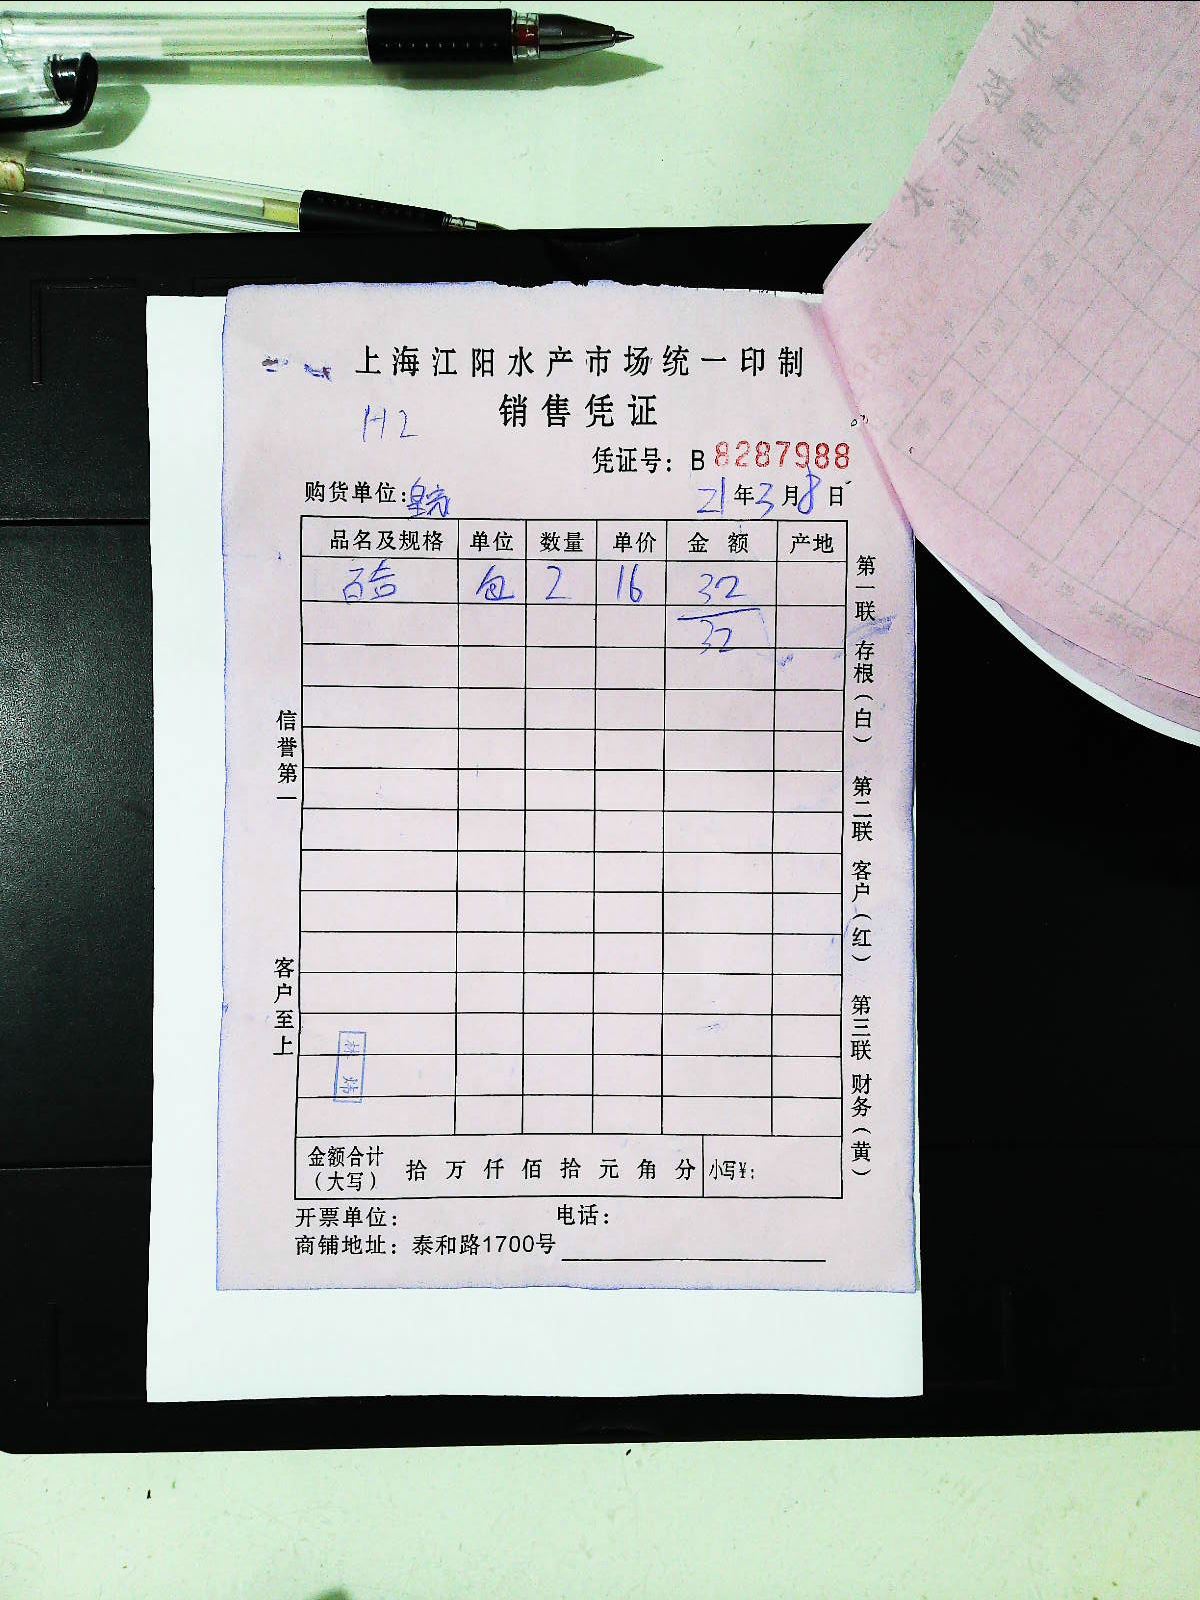 上海江阳水产市场统一印制
销售凭证
H2
凭证号：B 8287988
购货单位：
21年3月8日
品名及规格 单位 数量 单价 金额 产地
百合 包 2 16 32
32
信誉第一
客户至上
第一联 存根（白） 第二联 客户（红） 第三联 财务（黄）
金额合计（大写） 拾万仟佰拾元角分 小写¥：
开票单位： 电话：
商铺地址：泰和路1700号